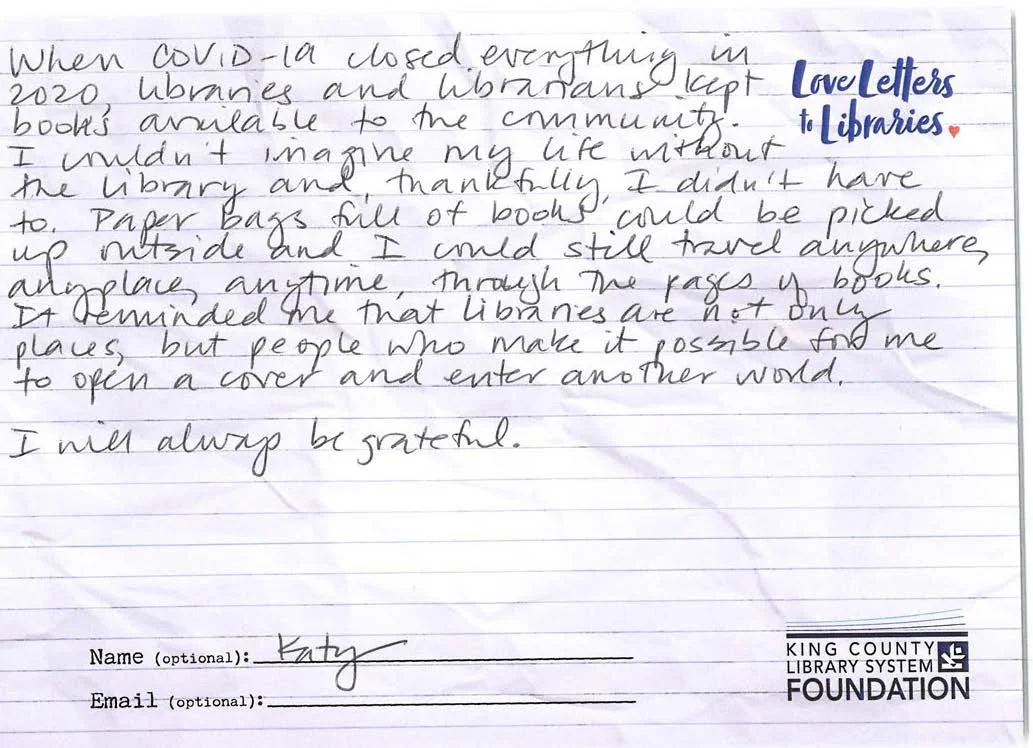 When COVID-19 closed everything in
2020, libraries and librarians kept
books available to the community.
I couldn't imagine my life without
the library and, thankfully, I didn't have
to. Paper bags full of books could be picked
up outside and I could still travel anywhere,
anyplace, anytime, through the pages of books.
It reminded me that libraries are not only
places, but people who make it possible for me
to open a cover and enter another world.
I will always be grateful.
Love Letters
to Libraries.
Name (optional): Katy
Email (optional):
KING COUNTY
LIBRARY SYSTEM
FOUNDATION